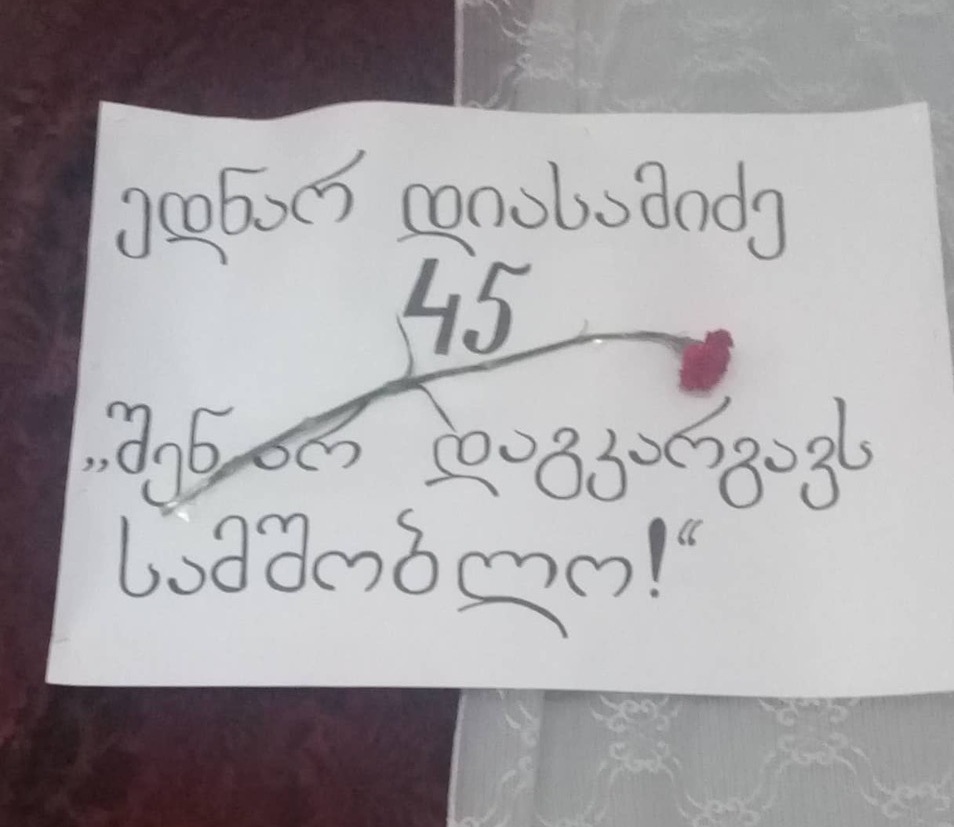 ედნარ დიასამიძე
45
„შენ არ დაგკარგავს
სამშობლო!“